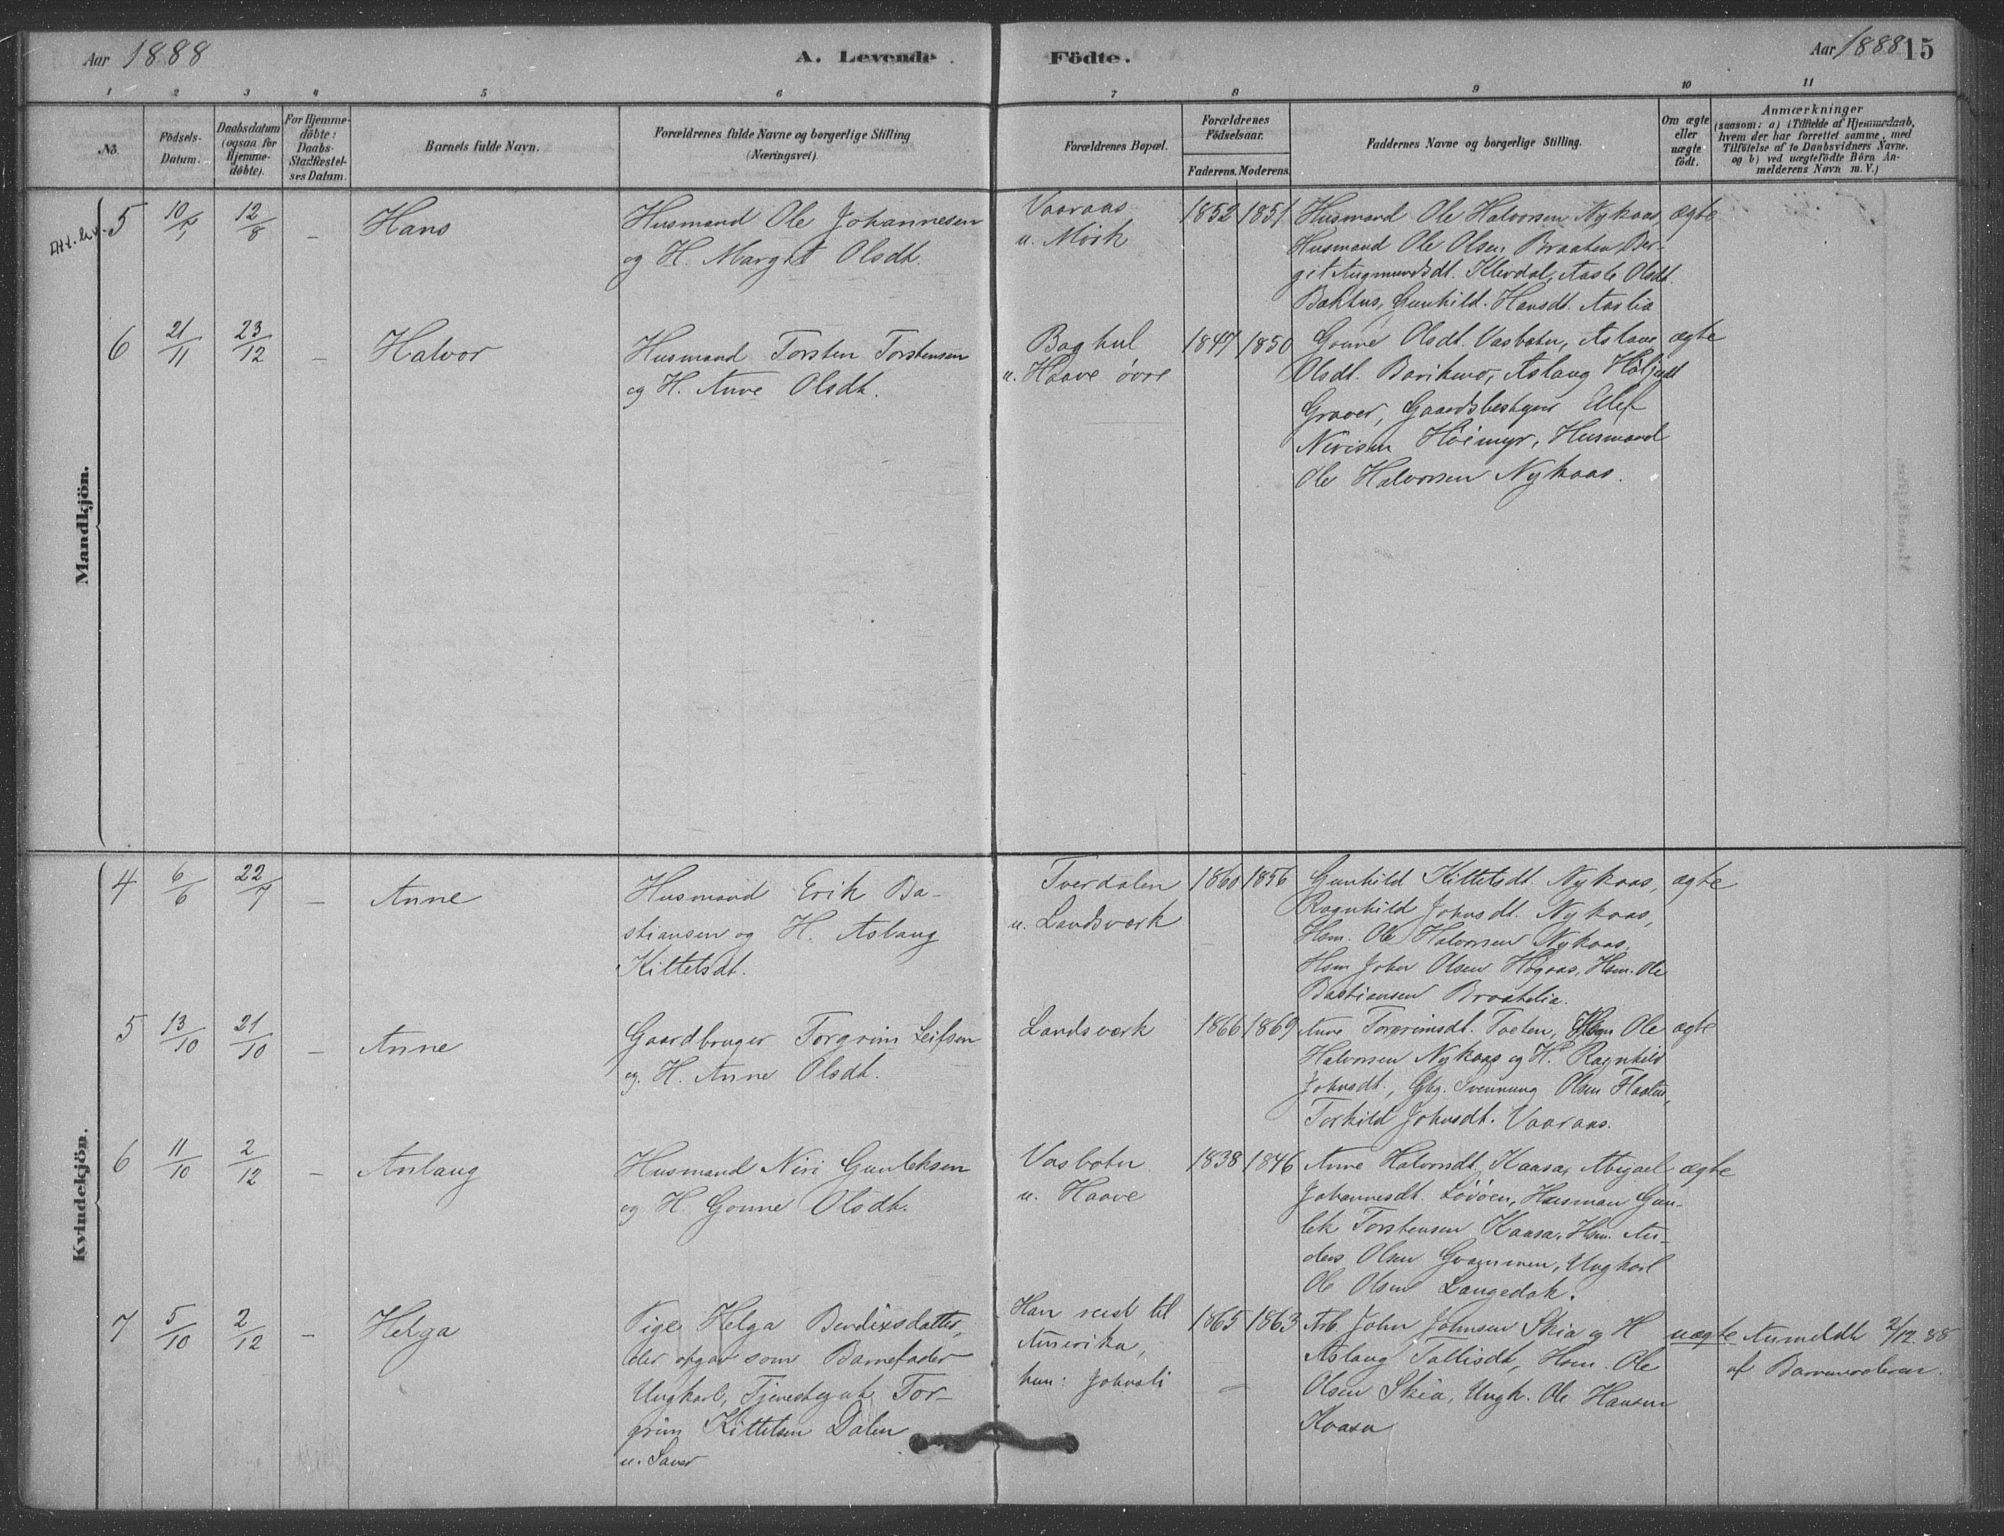 Aar 1888
A. Levende Födte.
Aar 1888 15
1 2 3 4 5 6 7 8 9 10 11
No.
Födsels-Datum.
Daabsdatum (ogsaa for Hjemmedöbte).
For Hjemmedöbte: Daabs-Stadfæstelses Datum.
Barnets fulde Navn.
Forældrenes fulde Navne og borgerlige Stilling (Næringsvei).
Forældrenes Bopæl.
Forældrenes Födselsaar.
Faderens. Moderens.
Faddernes Navne og borgerlige Stilling.
Om ægte eller uægte födt.
Anmærkninger
(saasom: a) i Tilfælde af Hjemmedaab,
hvem der har forrettet samme, med
Tilföielse af to Daabsvidners Navne.
og b) ved uægtefödte Börn An-
melderens Navn m. V.)
Mandkjön.
5 10/5 12/8 – Hans
Husmand Ole Johannesen
og H. Margit Olsdt.
Vaaraas
u. Mörk
1852 1851
Husmand Ole Halvorsen Nykaas,
Husmand Ole Olsen Braaten, Ber-
git Augmundsdt. Kleivdal, Aasle Olsdt.
Bakhus, Gunhild Hansdt. Aaslia
ægte
6 21/11 23/12 – Halvor
Husmand Torsten Torstensen
og H. Anne Olsdt.
Baghul
u. Haave övre
1847 1850
Gonne Olsdt. Vasboten, Aslaug
Olsdt. Aslaug
Graver, Gaardsbestyrer Ellef
Nirisen Höimyr, Husmand
Ole Halvorsen Nykaas.
ægte
Kvindekjön.
4 6/6 22/7 – Anne
Husmand Erik Ba-
stiansen og H. Aslaug
Kittelsdt.
Tverdalen
u. Landsværk
1860 1856
Gunhild Kittelsdt. Nykaas,
Ragnhild Johnsdt. Nykaas,
Hsm. Ole Halvorsen Nykaas.
Hsm John Olsen Högaas, Hsm. Ole
Bastiansen Braatelia.
ægte
5 13/10 21/10 – Anne
Gaardbruger Torgrim Leifsen
og H. Anne Olsdt.
Landsværk
1866 1869
Anne Torgrimsdt. Tveten, Hsm Ole
Halvorsen Nykaas og H. Ragnhild
Johnsdt., Gbg. Svennung Olsen Flaaten,
Torhild Johnsdt. Vaaraas.
ægte
6 11/10 2/12 – Aslaug
Husmand Niri Gunleksen
og H. Gonne Olsdt.
Vasboten
u. Haave
1838 1846
Anne Halvorsdt. Kaasa, Abigael
Johannesdt. Lövöen, Husman Gun-
lek Torstensen Kaasa, Hsm. An-
ders Olsen Gvammen, Ungkarl
Ole Olsen Langedok.
ægte
7 5/10 2/12 – Helga
Pige Helga Bendixsdatter,
der opgav som Barnefader
Ungkarl, Tjenestegut Tor-
grim Kittelsen Dalen
Han reist til
Amerika,
hun: Johnsli
1865 1863
Arb. John Johnsen Skia og H
Aslaug Tallisdt, Hsm. Ole
Olsen Skia, Ungk. Ole Hansen
Kaasa
uægte
Anmeldt 2/12. 88
af Barnemoderen.